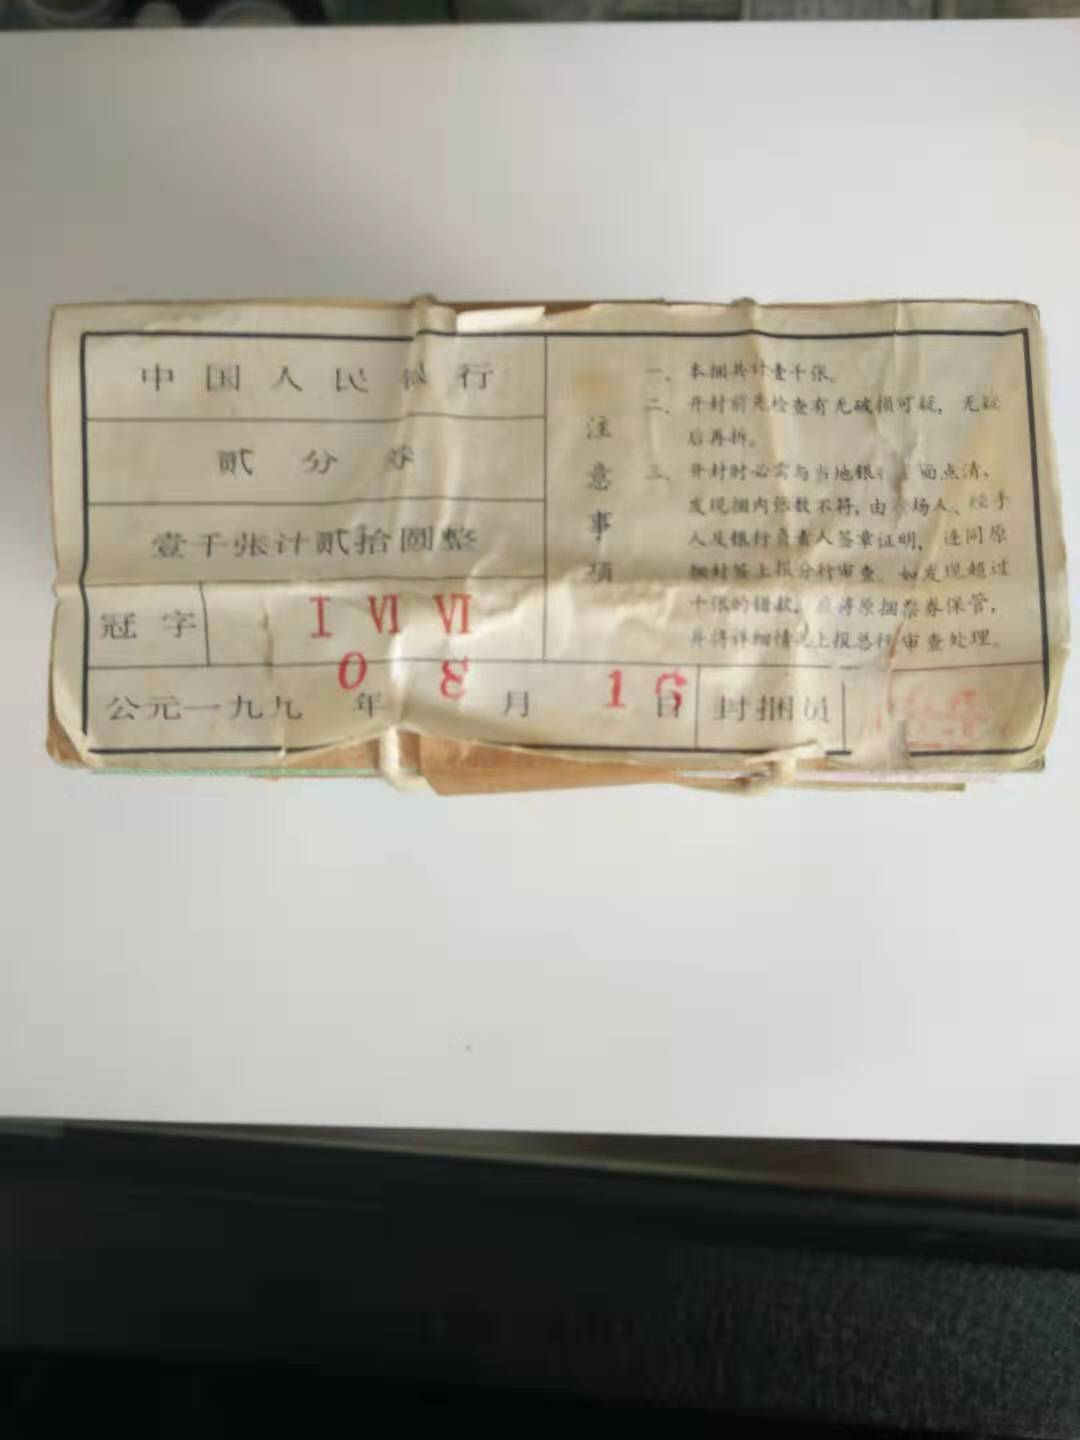 中国人民银行
贰分券
壹千张计贰拾圆整
冠字 I VI VI
公元一九九0年8月16日 封捆员
注意事项
一、本捆共计壹千张。
二、开封前先检查有无破损可疑，无疑
后再拆。
三、开封时必需与当地银行 面点清，
发现捆内张数不符，由 场人、经手
人及银行负责人签章证明，连同原
捆封签上报分行审查。如发现超过
十张的错款，应将原捆票券保管，
并将详细情况上报总行审查处理。